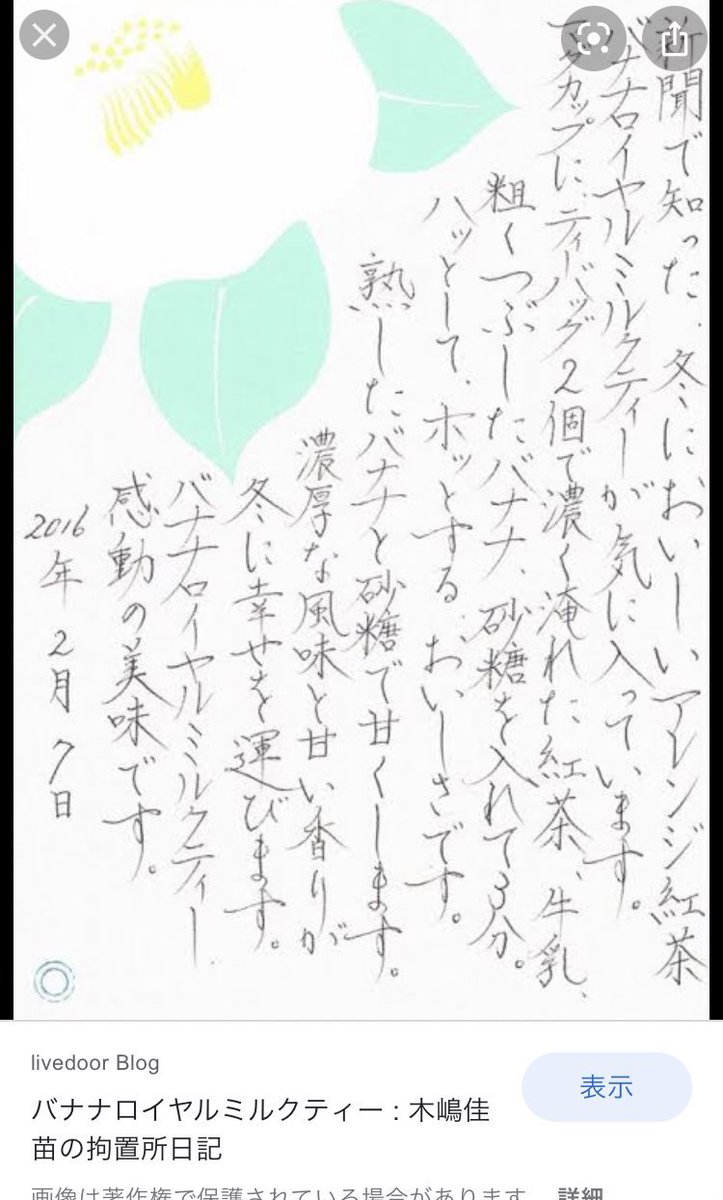 新聞で知った、冬においしいアレンジ紅茶
バナナロイヤルミルクティーが気に入っています。
マグカップに、ティーバッグ2個で濃く淹れた紅茶、牛乳、
粗くつぶしたバナナ、砂糖を入れて3分。
ハッとして、ホッとする おいしさです。
熟したバナナと砂糖で甘くします。
濃厚な風味と甘い香りが
冬に幸せを運びます。
バナナロイヤルミルクティー
感動の美味です。
2016年 2月 7日
livedoor Blog
バナナロイヤルミルクティー : 木嶋佳
苗の拘置所日記
表示
画像は著作権で保護されている場合があります。 詳細